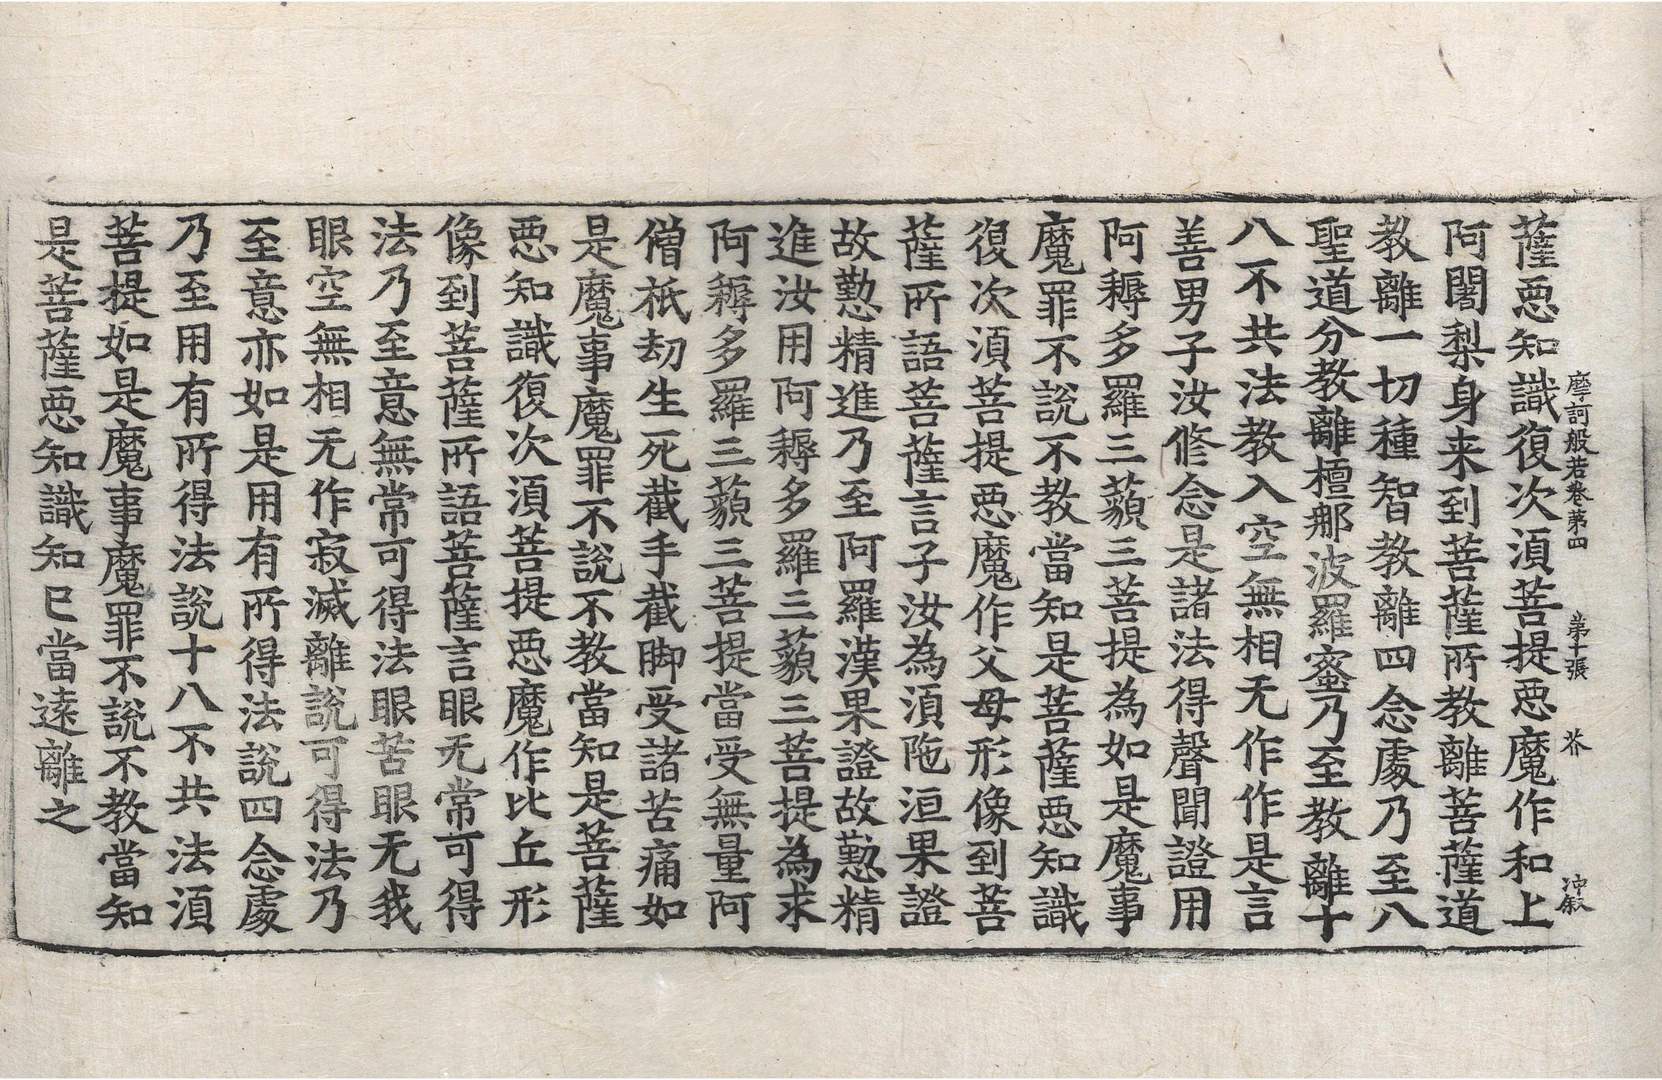 摩訶般若卷第四　第十張　芥　冲敘
薩惡知識復次須菩提惡魔作和上
阿闍梨身来到菩薩所教離菩薩道
教離一切種智教離四念處乃至八
聖道分教離檀那波羅蜜乃至教離十
八不共法教入空無相无作作是言
善男子汝修念是諸法得聲聞證用
阿耨多羅三藐三菩提為如是魔事
魔罪不說不教當知是菩薩惡知識
復次須菩提惡魔作父母形像到菩
薩所語菩薩言子汝為須陁洹果證
故懃精進乃至阿羅漢果證故懃精
進汝用阿耨多羅三藐三菩提為求
阿耨多羅三藐三菩提當受無量阿
僧祇劫生死截手截脚受諸苦痛如
是魔事魔罪不說不教當知是菩薩
惡知識復次須菩提惡魔作比丘形
像到菩薩所語菩薩言眼无常可得
法乃至意無常可得法眼苦眼无我
眼空無相无作寂滅離說可得法乃
至意亦如是用有所得法說四念處
乃至用有所得法說十八不共法須
菩提如是魔事魔罪不說不教當知
是菩薩惡知識知已當遠離之